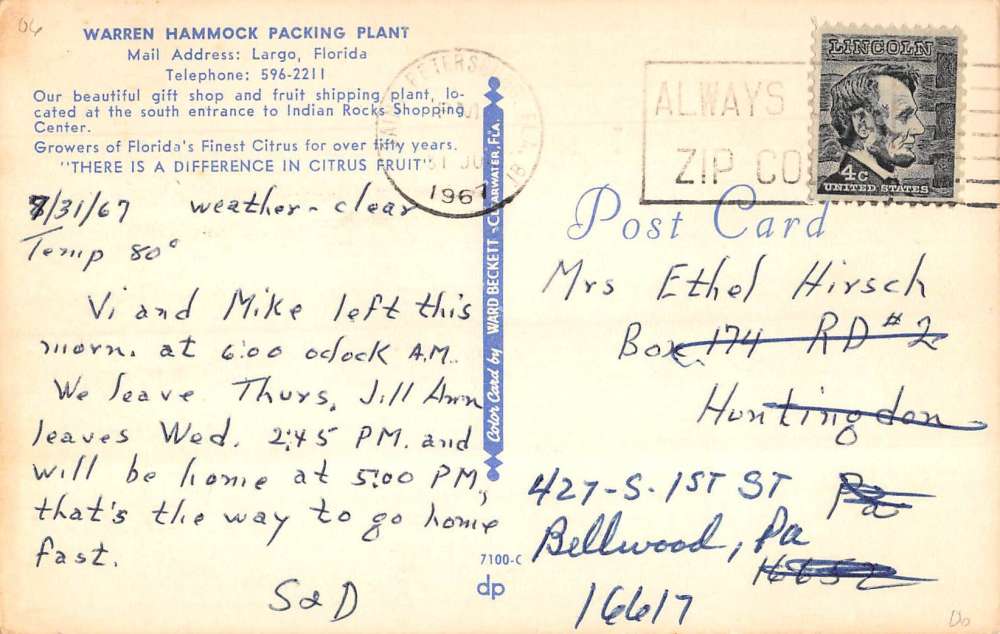 06
WARREN HAMMOCK PACKING PLANT
Mail Address: Largo, Florida
Telephone: 596-2211
Our beautiful gift shop and fruit shipping plant, lo-
cated at the south entrance to Indian Rocks Shopping
Center.
Growers of Florida's Finest Citrus for over fifty years.
"THERE IS A DIFFERENCE IN CITRUS FRUIT"
7/31/67 weather - clear
Temp 80°
Vi and Mike left this
morn. at 6:00 oclock A.M.
We leave Thurs, Jill Ann
leaves Wed. 2:45 PM. and
will be home at 5:00 PM,
that's the way to go home
fast.
S & D
Color Card by WARD BECKETT - CLEARWATER, FLA.
7100-C
dp
PETERSB
31
1967
ALWAYS
ZIP CO
LINCOLN
4c
UNITED STATES
Post Card
Mrs Ethel Hirsch
Box 174 RD #2
Huntingdon
Pa
16652
427-S-1ST ST
Bellwood, Pa
16617